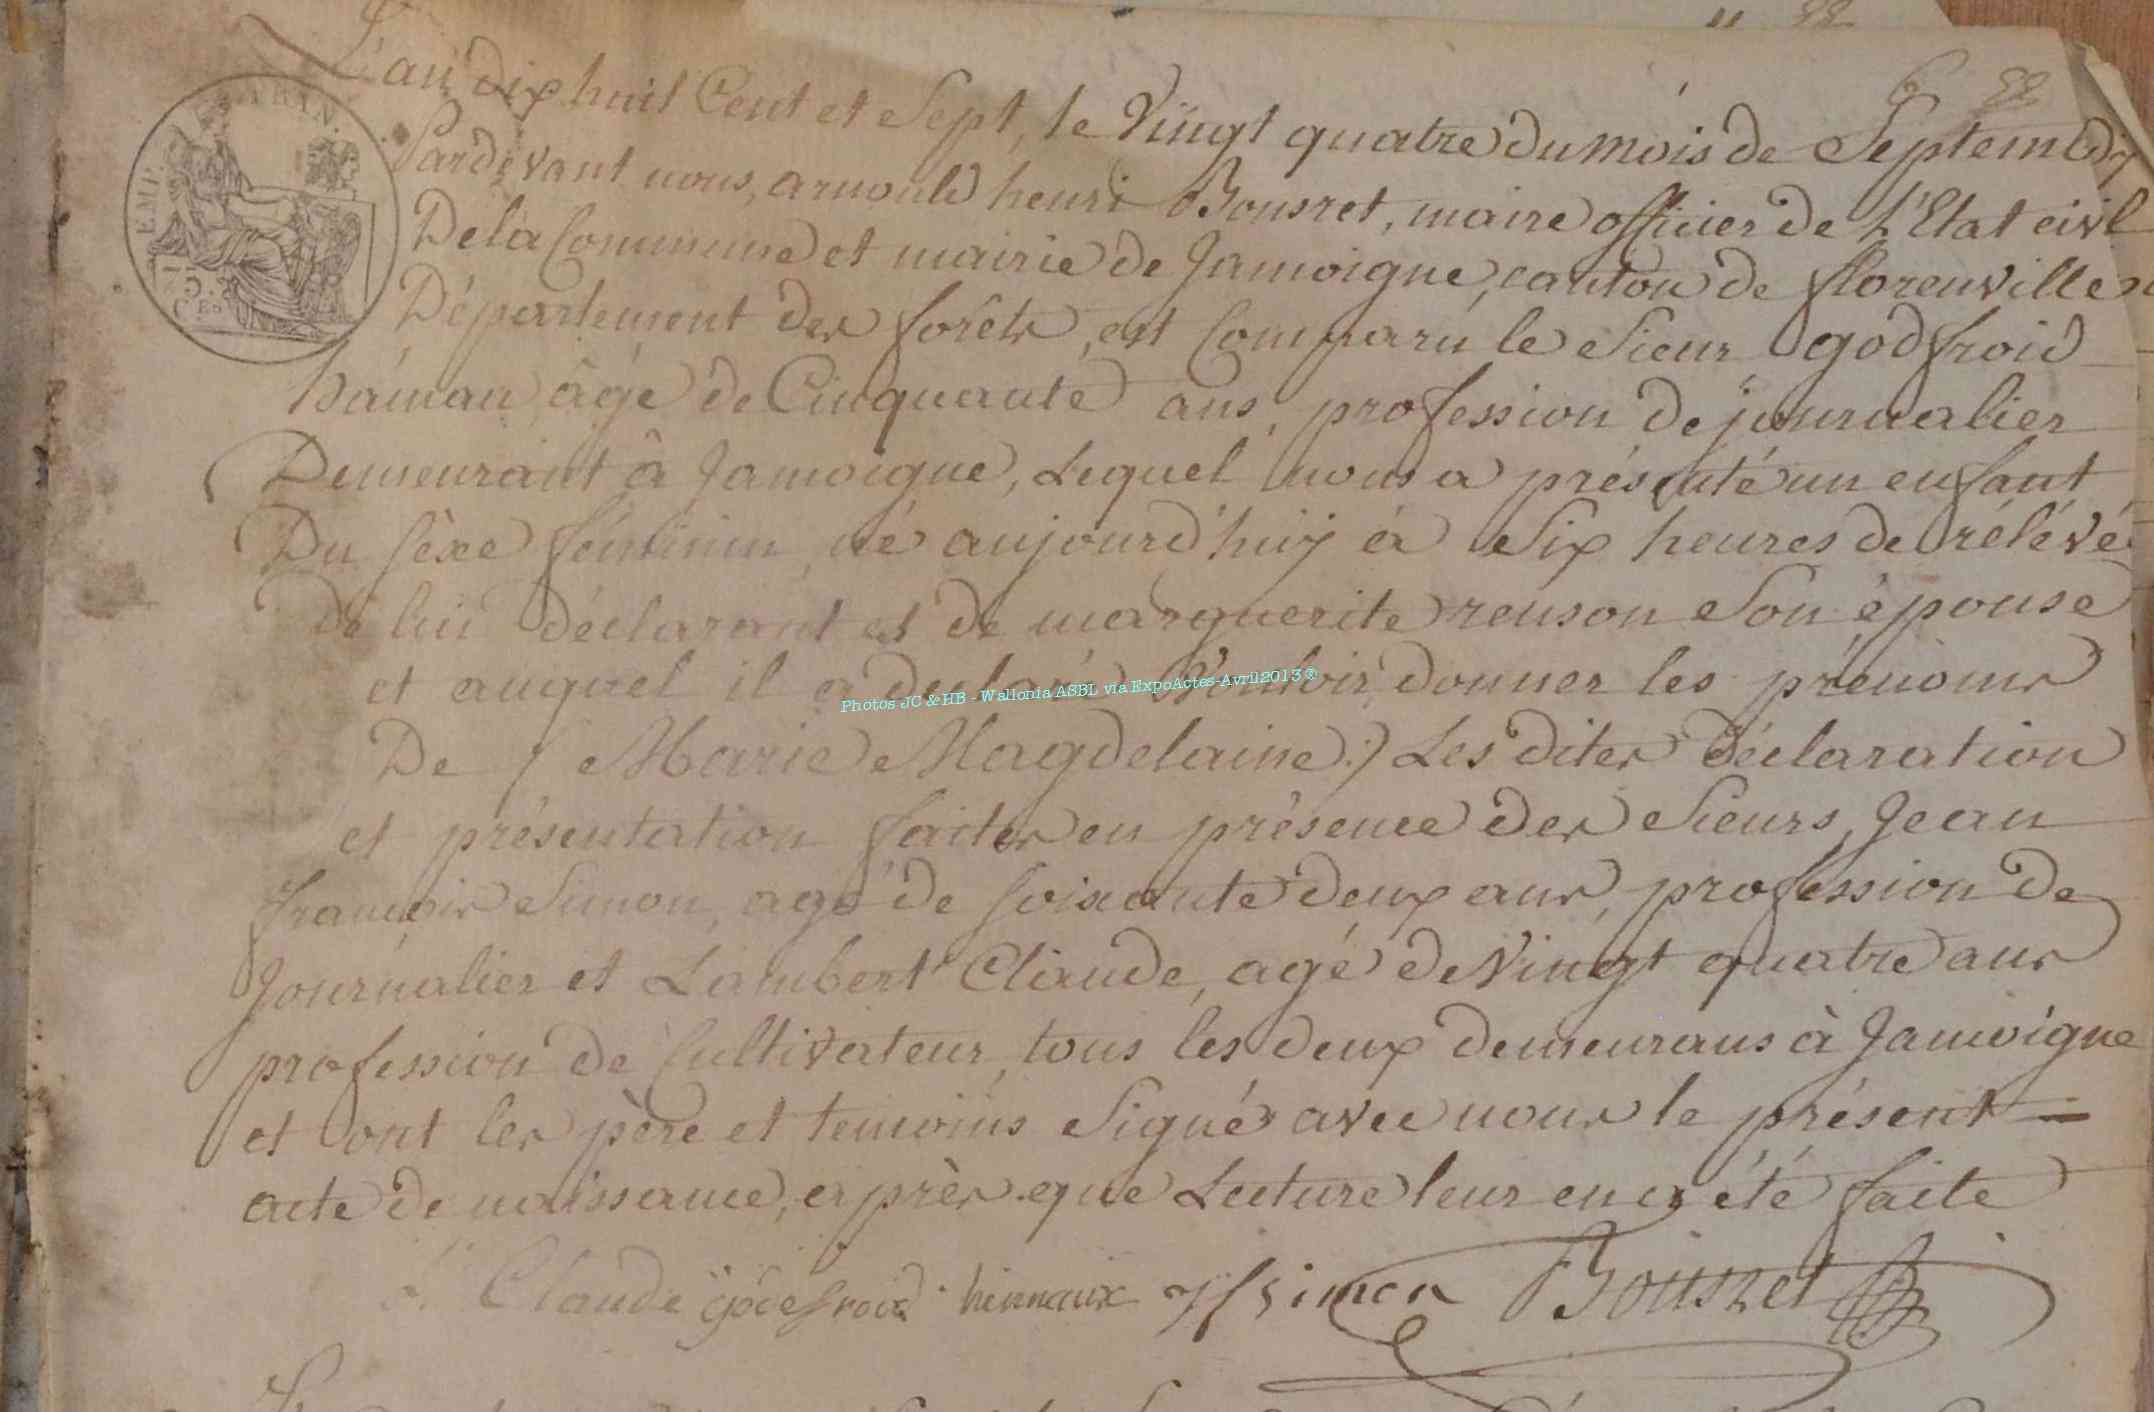 6 88
L'an dix huit Cent et Sept, le Vüngt quatre du mois de Septembr
Pardevant nous, arnould henri Bousret, maire officier de L'Etat civil
De la Commune et mairie de Jamoigne, canton de florenville
Département des forêts, est Comparu le Sieur godfroid
hainan âgé de Cinquante ans, profession de journalier
Demeurant à Jamoigne, Lequel nous a présenté un enfant
Du sèxe féminin, né aujourd'huÿ à Six heures de rélévé
De lui déclarant et de marguerite renson Son épouse
et auquel il a déclaré Vouloir donner les prénoms
De (Marie Magdelaine:) Les dites déclaration
et présentation faites en présence des Sieurs, Jean
françois Simon, agé de soixante deux ans, profession de
Journalier et Lambert Claude, agé de Vingt quatre ans
profession de Cultivateur, tous les deux demeurans à Jamoigne
et ont les père et temoins Signé avec nous le présent
acte de naissance, après que Lecture leur en a été faite
Claude godefroid hinnaux JfSimon Bousret
EMP.
75
CES
Photos JC & HB - Wallonia ASBL via ExpoActes-Avril2013®